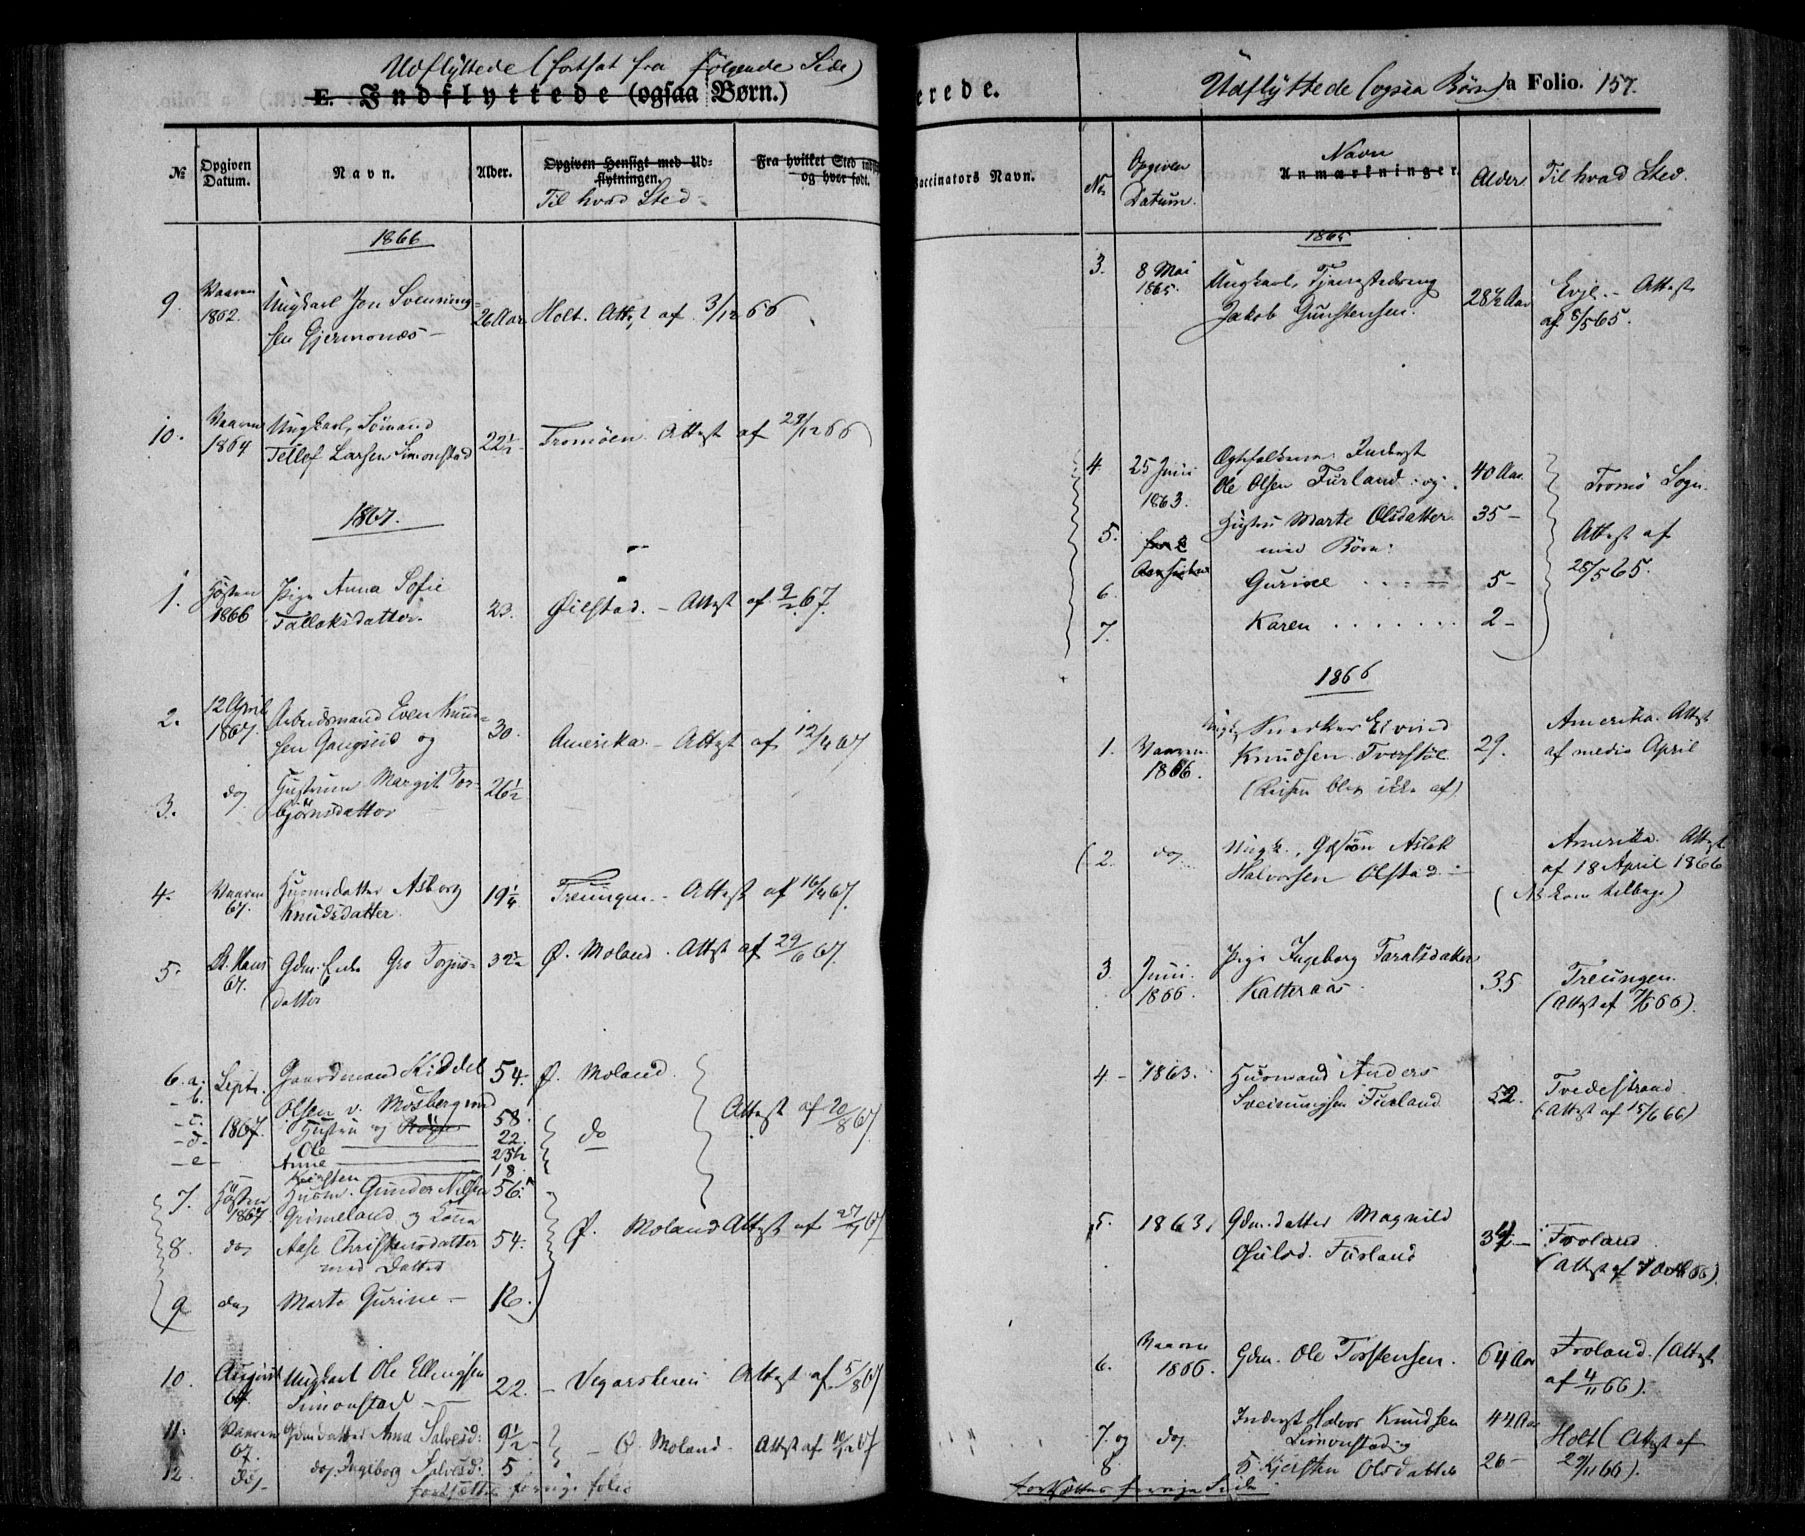 Udflyttede (fortsat fra følgende Side)
E. Indflyttede (ogsaa Børn.)
№ Opgiven Datum. Navn. Alder. Opgiven Hensigt med Udflytningen. Fra hvilket Sted og hvor født.
Til hvad Sted
1866
9. Vaaren Ungkarl Jon Svenning-
1862. sen Gjermonæs 26 Aar. Holt. Attest af 3/12 66
10. Vaaren Ungkarl, Sømand
1864 Tellof Larsen Simonstad 22½ Tromøen. Attest af 29/12 66
1867.
1. Høsten Pige Anna Sofie
1866 Tallaksdatter. 23. Øiestad. - Attest af 9/2 67.
2. 12 April Arbeidsmand Even Knud-
1867. sen Gangseid og 30. Amerika - Attest af 12/4 67.
do Hustrue Margit Tor- 26½
3. bjørnsdatter
4. Vaaren Huusmdatter Asborg 19¼ Treungen - Attest af 16/4 67.
67. Knudsdatter.
5. St. Hans Gdm. Enke Gro Torjus- 32½ Ø. Moland. Attest af 29/6 67.
67. datter
6. a. Sept. Gaardmand Kiddel 54. Ø. Moland.
- b. Olsen v. Mosberg med
- c. 1867. Hustru og 58. Attest af 20/8 67
- d. Ole 22. do
- e Anne 25½
Kirsten 18
7. Høsten Husm. Gunder Nilsen 56.
1867. Grimeland og Kona Ø. Moland Attest af 27/9 67
8. do Aase Christensdatter 54.
med Datter
9 do Marte Gurine - 12.
10. August Ungkarl Ole Ellingsen 22. - Vegarsheien Attest af 5/8 67
67. Simonstad
11. Vaaren Gdmdatter Anna Salvesd: 9½ - Ø. Moland. Attest af 10/12 67
67.
12. do. do Ingeborg Salvesd: 5
fortsættes forrige folio
erede.
Udflyttede (ogsaa Børn) a Folio. 157.
Vaccinators Navn. No Opgiven Datum. Navn Anmærkninger. Alder. Til hvad Sted.
1865
3. 8 Mai Ungkarl, Tjenestedreng
1865. Jakob Gunstensen. 28½ Aar Evje. - Attest
af 8/5 65.
4 25 Juni Ægtefolkene: Inderst
1863. Ole Olsen Furland og 40 Aar. Tromø Sogn.
5. Hustru Marte Olsdatter 35 - Attest af
med Børn: 28/5 65.
6. Gurine 5 -
7. Karen 2 -
1866
1. Vaaren Ungk. Snedker Eivind
1866. Knudsen Tverstøl 29. Amerika. Attest
(Reisen blev ikke af) af medio April
2. do Ungk. Aslak Amerika. Attest
Halvorsen Olstad af 18 April 1866
(NB kom tilbage)
3. Juni Pige Ingeborg Taralsdatter
1866. Katteraas. 35 Treungen.
4 - 1863. Husmand Anders
Sveinungsen Furland 52. Tvedestrand
(Attest af 15/6 66)
5. 1863. Gdm.datter Magnild
Gulsd. Furland 34 - Froland
(Attest af 7 Oct 66).
6. Vaaren Gdm. Ole Torstensen. 64 Aar Froland. (Attest
1866. af 4/11 66).
7. og do. Inderst Halvor Knudsen 44 Aar
Simonstad og Holt (Attest af
8 Kjersten Olsdatter 26 - 29/11 66).
fortsættes forrige Side